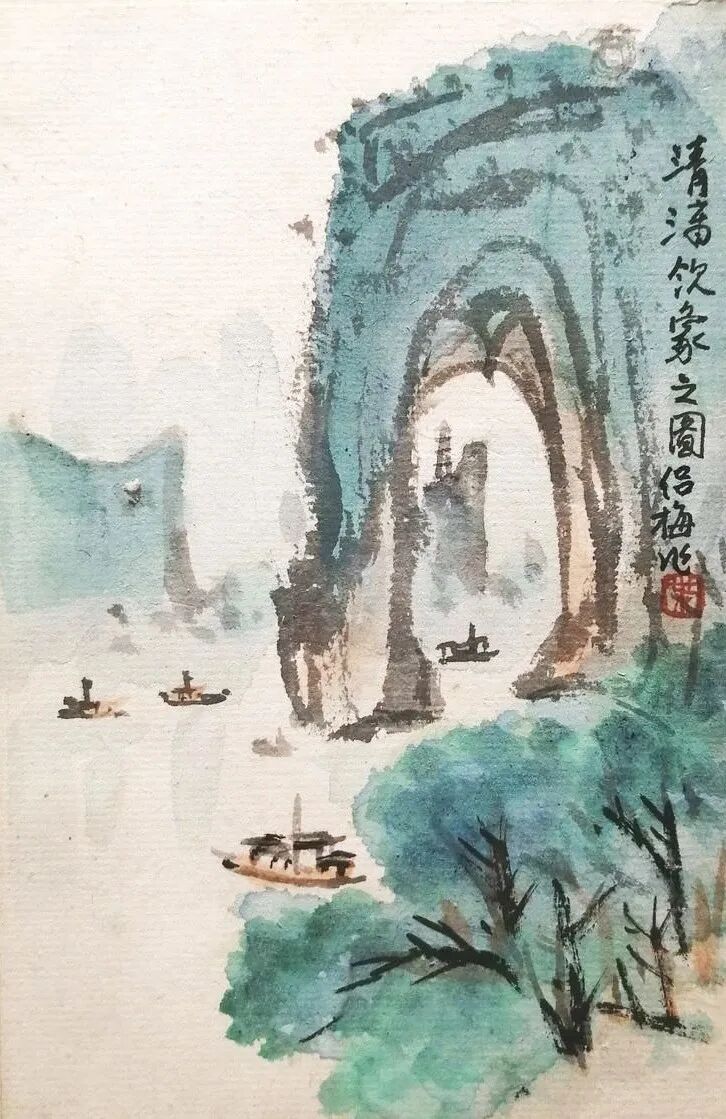 清漓饮象之图侣梅作